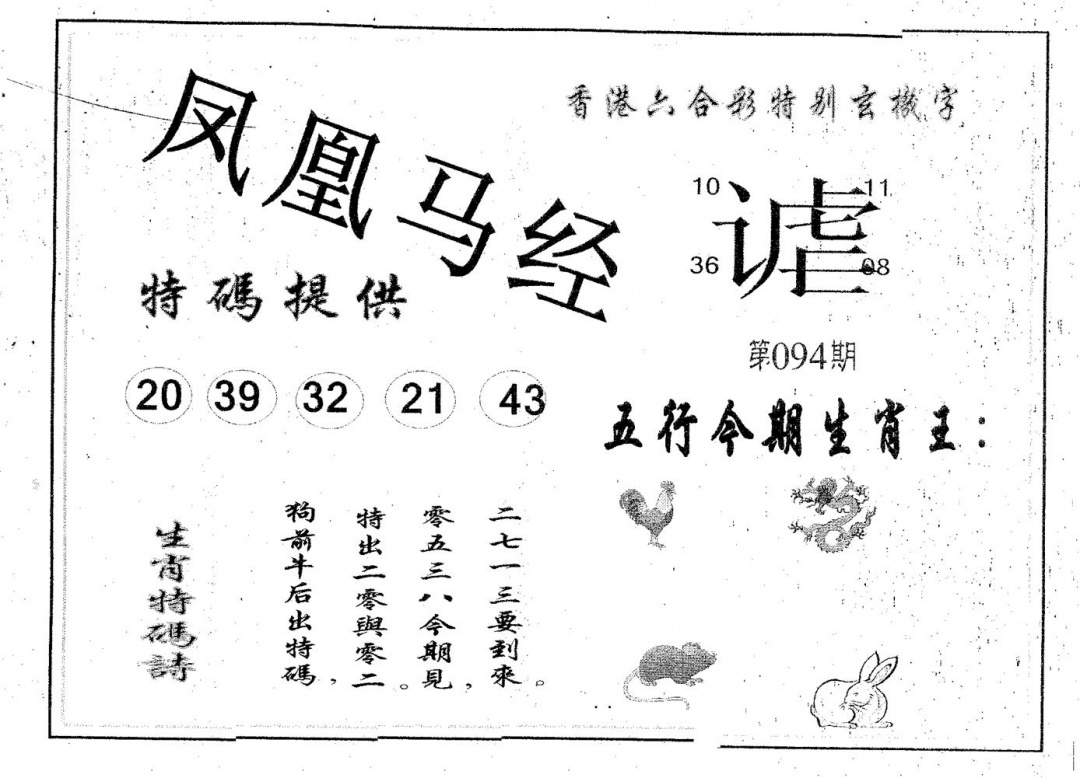 凤凰马经
香港六合彩特别玄機字
10 11
谑
36 08
特碼提供
第094期
20 39 32 21 43
五行今期生肖王：
生肖特碼詩
狗前牛后出特碼，
特出二零與零二。
零五三八今期見，
二七一三要到來。